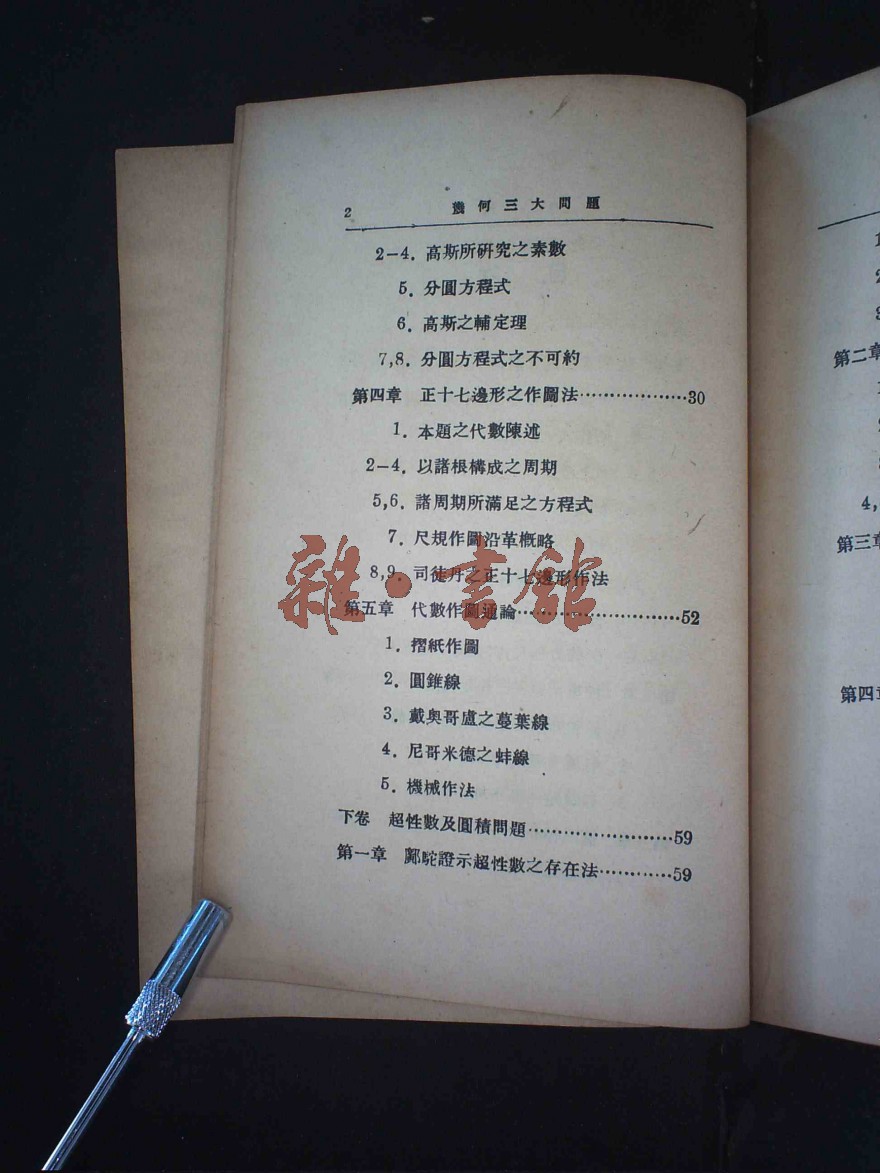 2 幾何三大問題
2-4. 高斯所硏究之素數
5. 分圓方程式
6. 高斯之輔定理
7,8. 分圓方程式之不可約
第四章 正十七邊形之作圖法··················30
1. 本題之代數陳述
2-4. 以諸根構成之周期
5,6. 諸周期所滿足之方程式
7. 尺規作圖沿革概略
8,9. 司徒丹之正十七邊形作法
第五章 代數作圖通論·························52
1. 摺紙作圖
2. 圓錐線
3. 戴奧哥盧之蔓葉線
4. 尼哥米德之蚌線
5. 機械作法
下卷 超性數及圓積問題·······················59
第一章 鄺駝證示超性數之存在法············59
雜·書館
1
2
3
第二章
1
4,
第三章
第四章